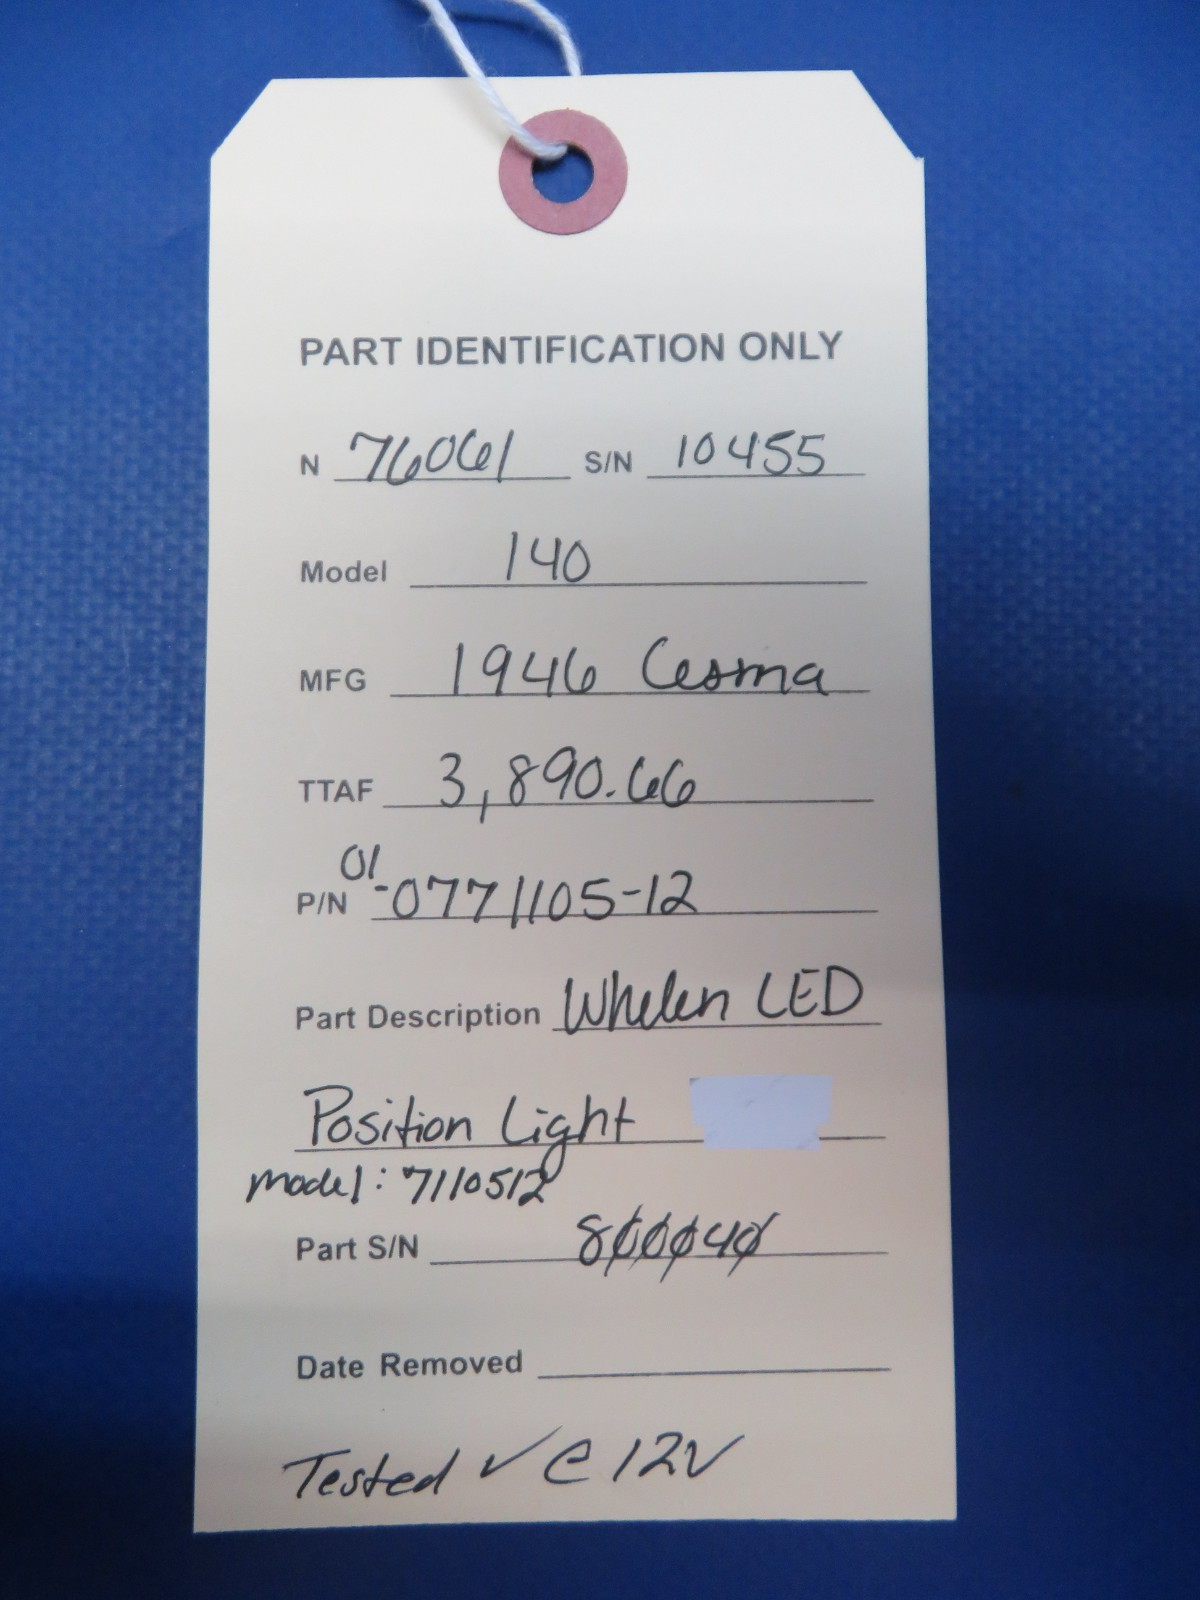 PART IDENTIFICATION ONLY
N 76061 S/N 10455
Model 140
MFG 1946 Cessna
TTAF 3,890.66
P/N 01-0771105-12
Part Description Whelen LED
Position Light
model: 7110512
Part S/N 800040
Date Removed
Tested ✓ @ 12V